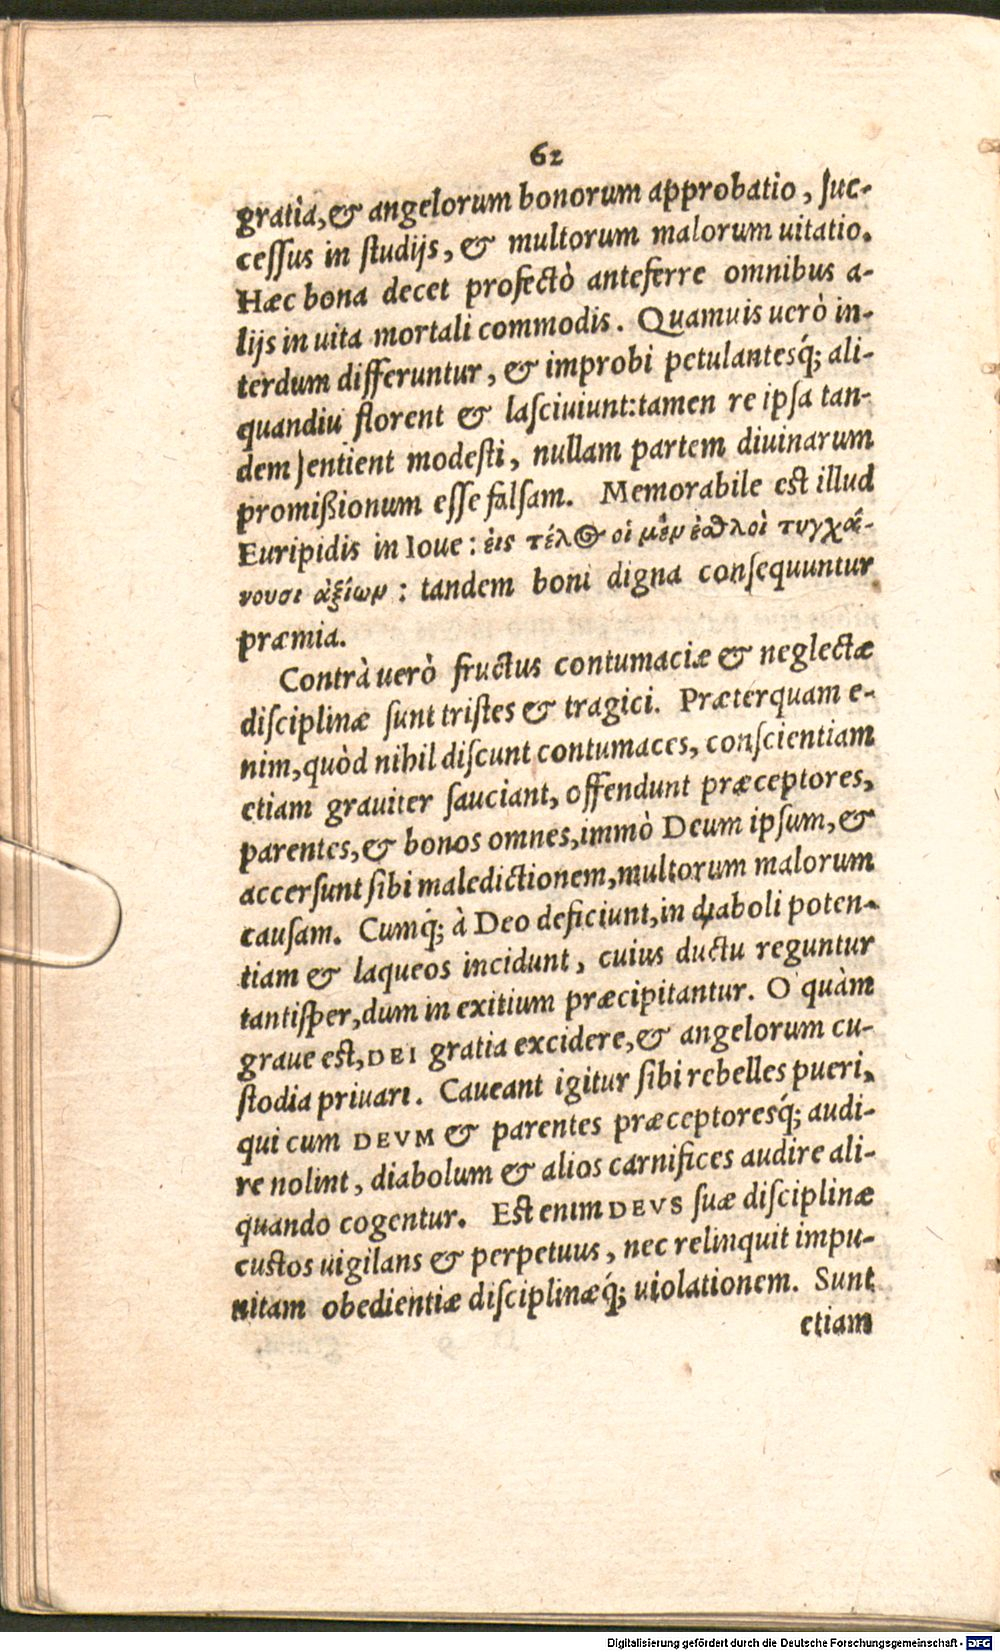 62
gratia, & angelorum bonorum approbatio, ſuc-
ceſſus in ſtudijs, & multorum malorum uitatio.
Hæc bona decet profectò anteferre omnibus a-
lijs in uita mortali commodis. Quamuis uerò in-
terdum differuntur, & improbi petulantesq́; ali-
quandiu florent & laſciuiunt: tamen re ipſa tan-
dem ſentient modeſti, nullam partem diuinarum
promiſſionum eſſe falſam. Memorabile eſt illud
Euripidis in Ioue: ἐις τέλος οἱ μὲν ἐσθλοὶ τυγχά-
νουσι ἀξίων: tandem boni digna conſequuntur
præmia.
Contrà uerò fructus contumaciæ & neglectæ
diſciplinæ ſunt triſtes & tragici. Præterquam e-
nim, quòd nihil diſcunt contumaces, conſcientiam
etiam grauiter ſauciant, offendunt præceptores,
parentes, & bonos omnes, immò Deum ipſum, &
accerſunt ſibi maledictionem, multorum malorum
cauſam. Cumq́; à Deo deficiunt, in diaboli poten-
tiam & laqueos incidunt, cuius ductu reguntur
tantiſper, dum in exitium præcipitantur. O quàm
graue eſt, DEI gratia excidere, & angelorum cu-
ſtodia priuari. Caueant igitur ſibi rebelles pueri,
qui cum DEVM & parentes præceptoresq́; audi-
re nolint, diabolum & alios carnifices audire ali-
quando cogentur. Eſt enim DEVS ſuæ diſciplinæ
cuſtos uigilans & perpetuus, nec relinquit impu-
nitam obedientiæ diſciplinæq́; uiolationem. Sunt
etiam
Digitalisierung gefördert durch die Deutsche Forschungsgemeinschaft - DFG